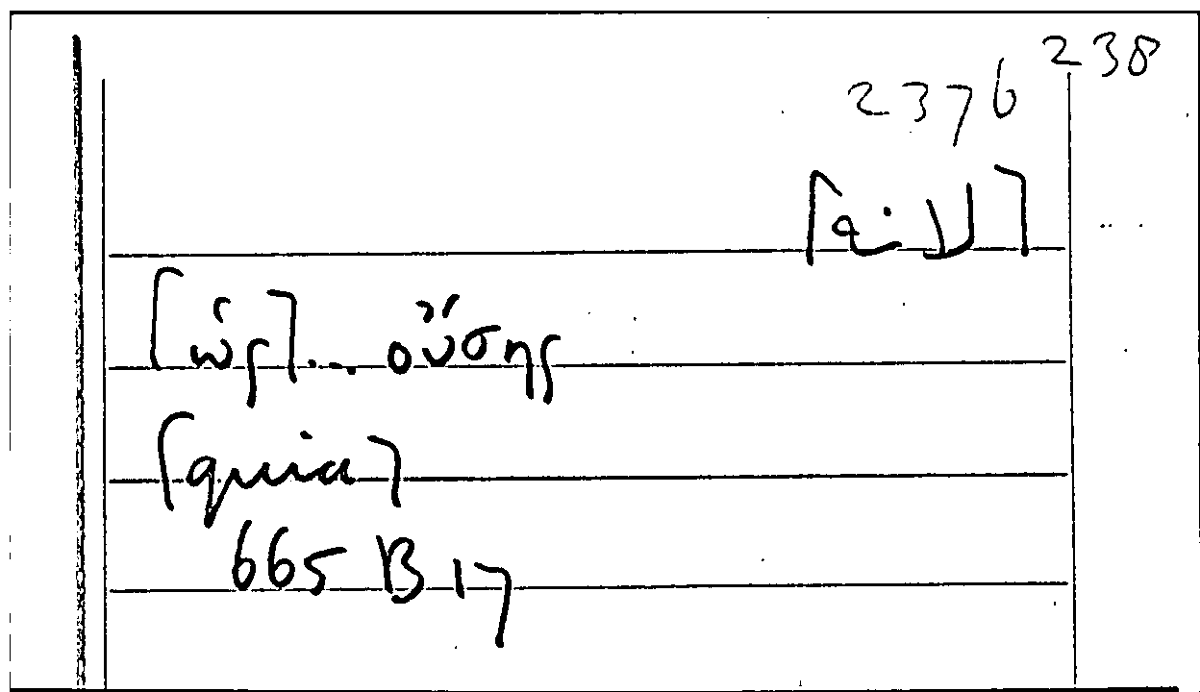 238
2376
[لانه]
[ὡς]... οὔσης
[quia]
665 B 17